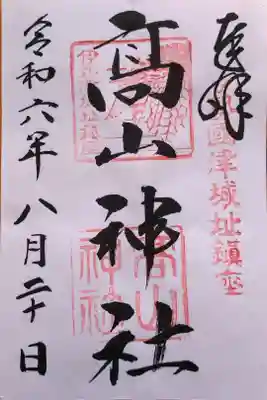 奉拝
國津城址鎮座
高山神社
高山神社
令和六年八月二十日